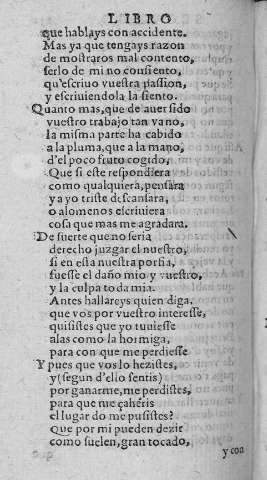 LIBRO
que hablays con accidente.
Mas ya que tengays razon
de mostraros mal contento,
serlo de mi no consiento,
qu'escriuo vuestra passion,
y escriuiendola la siento.
Quanto mas, que de auer sido
vuestro trabajo tan vano,
la misma parte ha cabido
a la pluma, que a la mano,
d'el poco fruto cogido,
Que si este respondiera
como qualquiera, pensara
ya yo triste descansara,
o alomenos escriuiera
cosa que mas me agradara.
De suerte que no seria
derecho juzgar el nuestro,
si en esta nuestra porfia,
fuesse el daño mio y vuestro,
y la culpa toda mia.
Antes hallareys quien diga,
que vos por vuestro interesse,
quisistes que yo tuuiesse
alas como la hormiga,
para con que me perdiesse
Y pues que vos lo hezistes,
y (segun d'ello sentis)
por ganarme, me perdistes,
para que me çaheris
el lugar do me pusistes?
Que por mi pueden dezir
como suelen, gran tocado,
y con